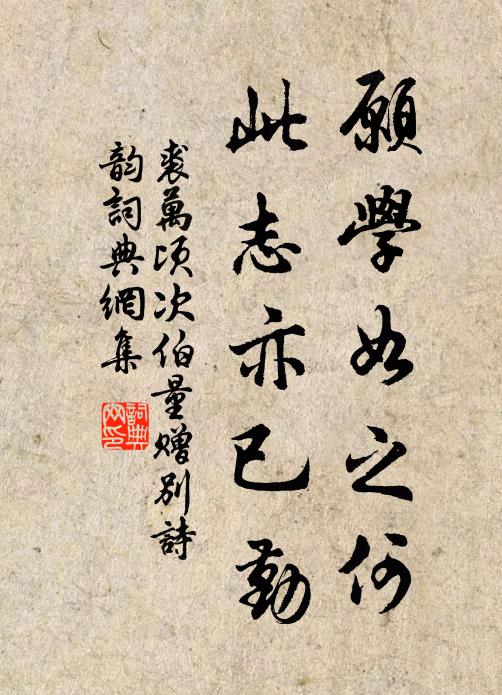 願學如之何
此志亦已勤
裘萬頃次伯量贈別詩
韵詞典網集
詞典网印